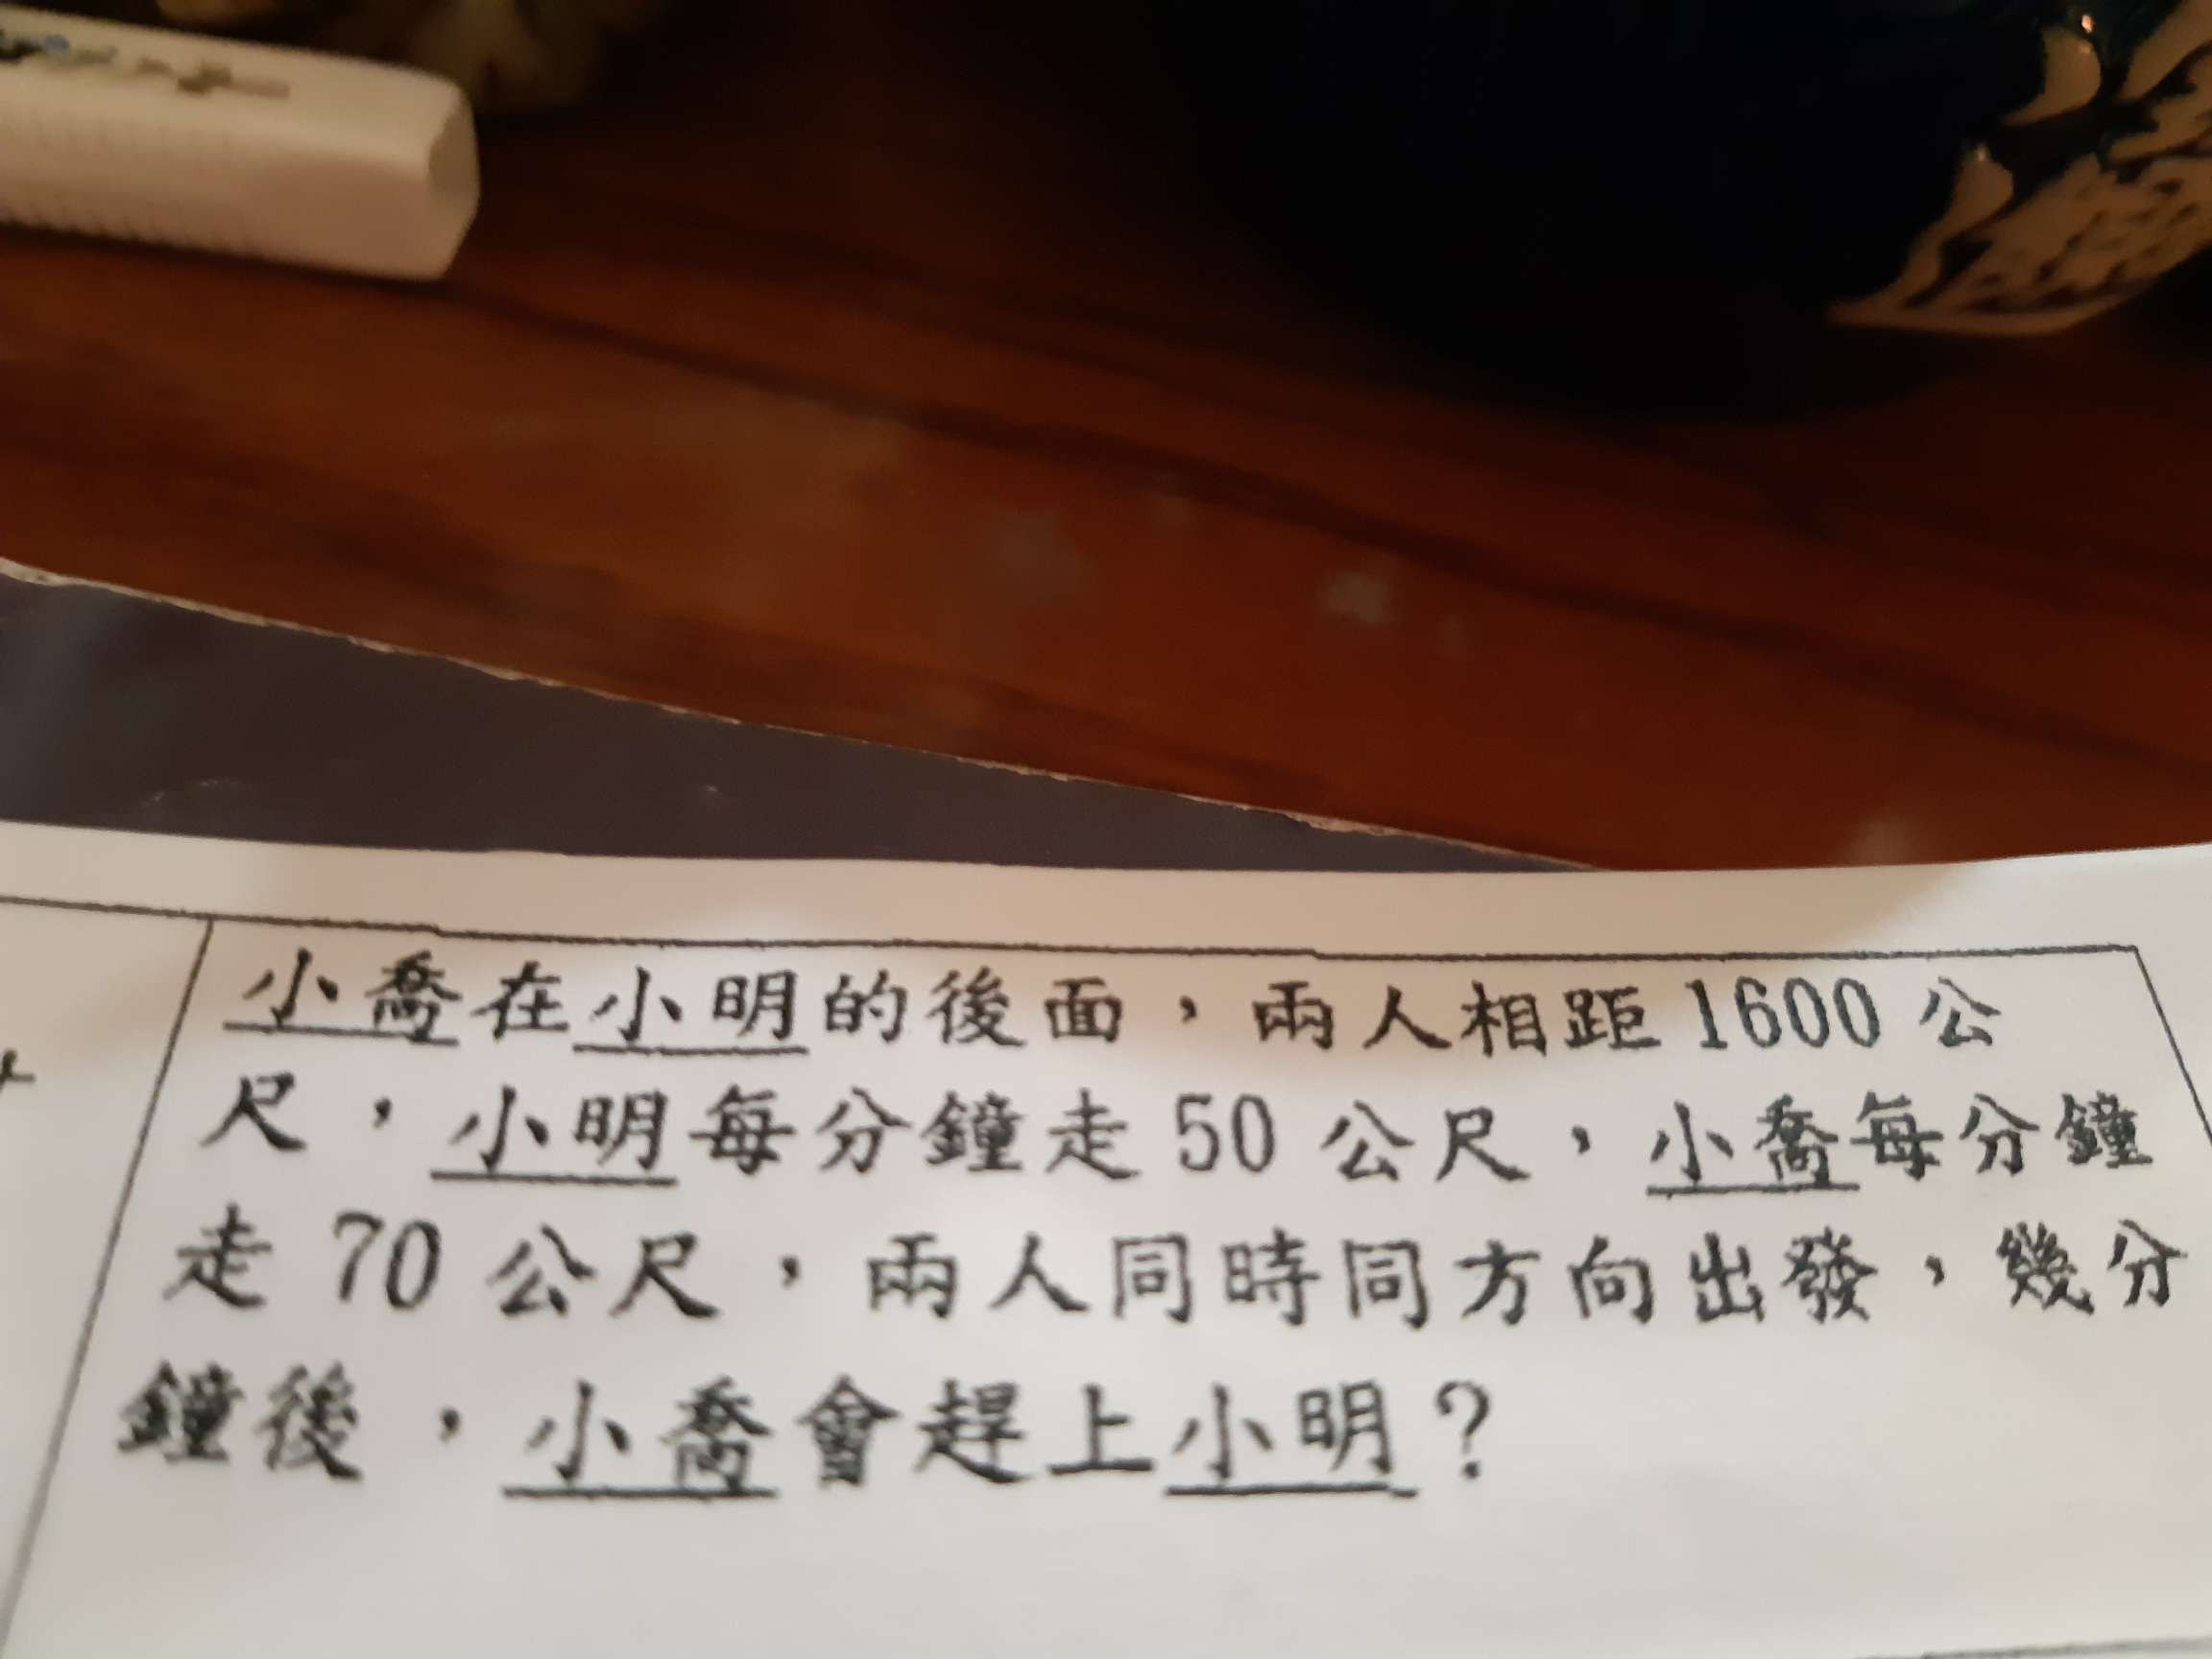 小喬在小明的後面，兩人相距1600公
尺，小明每分鐘走50公尺，小喬每分鐘
走70公尺，兩人同時同方向出發，幾分
鐘後，小喬會趕上小明？